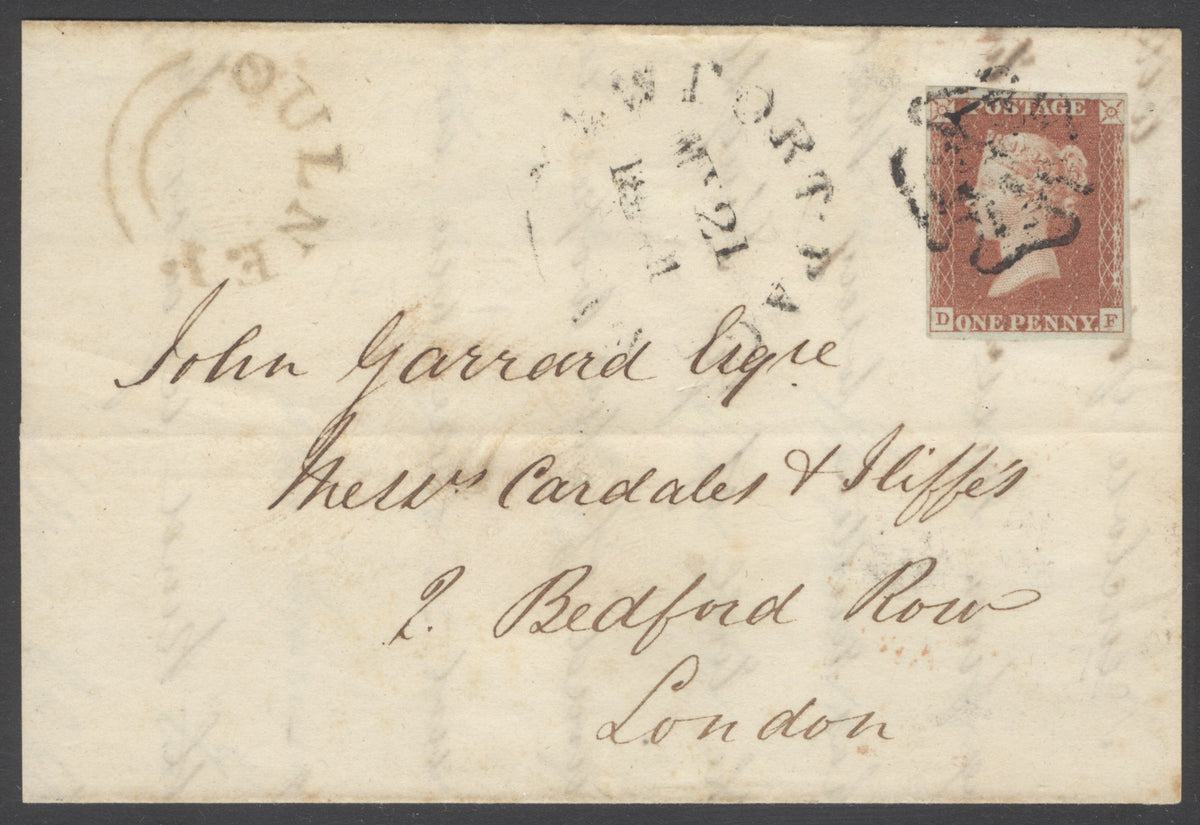 OULNEY
NEWPORT PAG
MY 21
POSTAGE
D ONE PENNY. F
John Garrard Esqre
Messrs Cardales & Iliffe's
2. Bedford Row
London